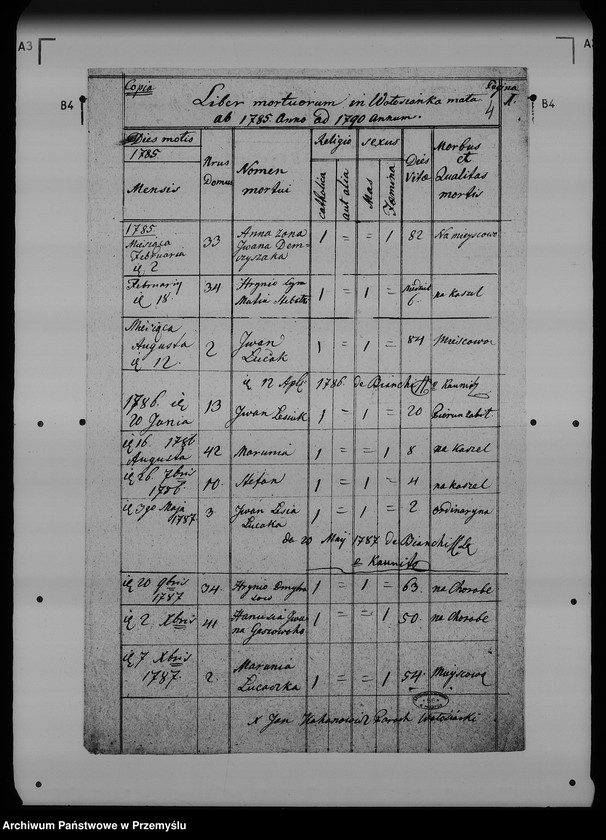 A3
A3
B4
B4
Copia
Pagina
1
Liber mortuorum in Wołosianka mała
4
ab 1785. Anno ad 1790 Annum.
Dies motis
1785
Mensis
Nrus Domus
Nomen mortui
Religio
catholica
aut alia
sexus
Mas
Fæmina
Dies Vitæ
Morbus et Qualitas mortis
1785
Miesiąca
Februaria
ię 2
33
Anna żona
Jwana Dem-
czyszaka
1 = = 1 82
Na mieyscowo
Februarij
ię 18.
34
Hrynio Sym
1 = 1 =
6.
na Kaszel
Miesiąca
Augusta
ię 12.
2
Jwan
Lucak
1 = 1 = 84
ię 12 Apl; 1786. de Bianchi
e Kaunitz
1786 ię
20 Junia
13
Jwan Lesiuk
1 = 1 = 20
Piorun zabił
ię 16. 1786
Augusta
42
Marunia
1 = = 1 8
na Kaszel
ię 26. 7bris
1786.
10.
Stefan
1 = 1 = 4
na kaszel
ię 3go Maja
1787.
3.
Jwan Lesia
Lucaka
1 = 1 = 2
ordinaryna
de 20 Maij 1787 de Bianchi
e Kaunitz
ię 20 9bris
1787
34.
Hrynio Dmytra
1 = 1 = 63.
na Chorobe
ię 2. Xbris
41.
Hanusia Jwa-
na
1 = = 1 50.
na Chorobe
ię 7 Xbris
1787.
2.
Marunia
Lucaczka
1 = = 1 54.
X Jan Kakanowicz Paroch Wołosianki
Archiwum Państwowe w Przemyślu